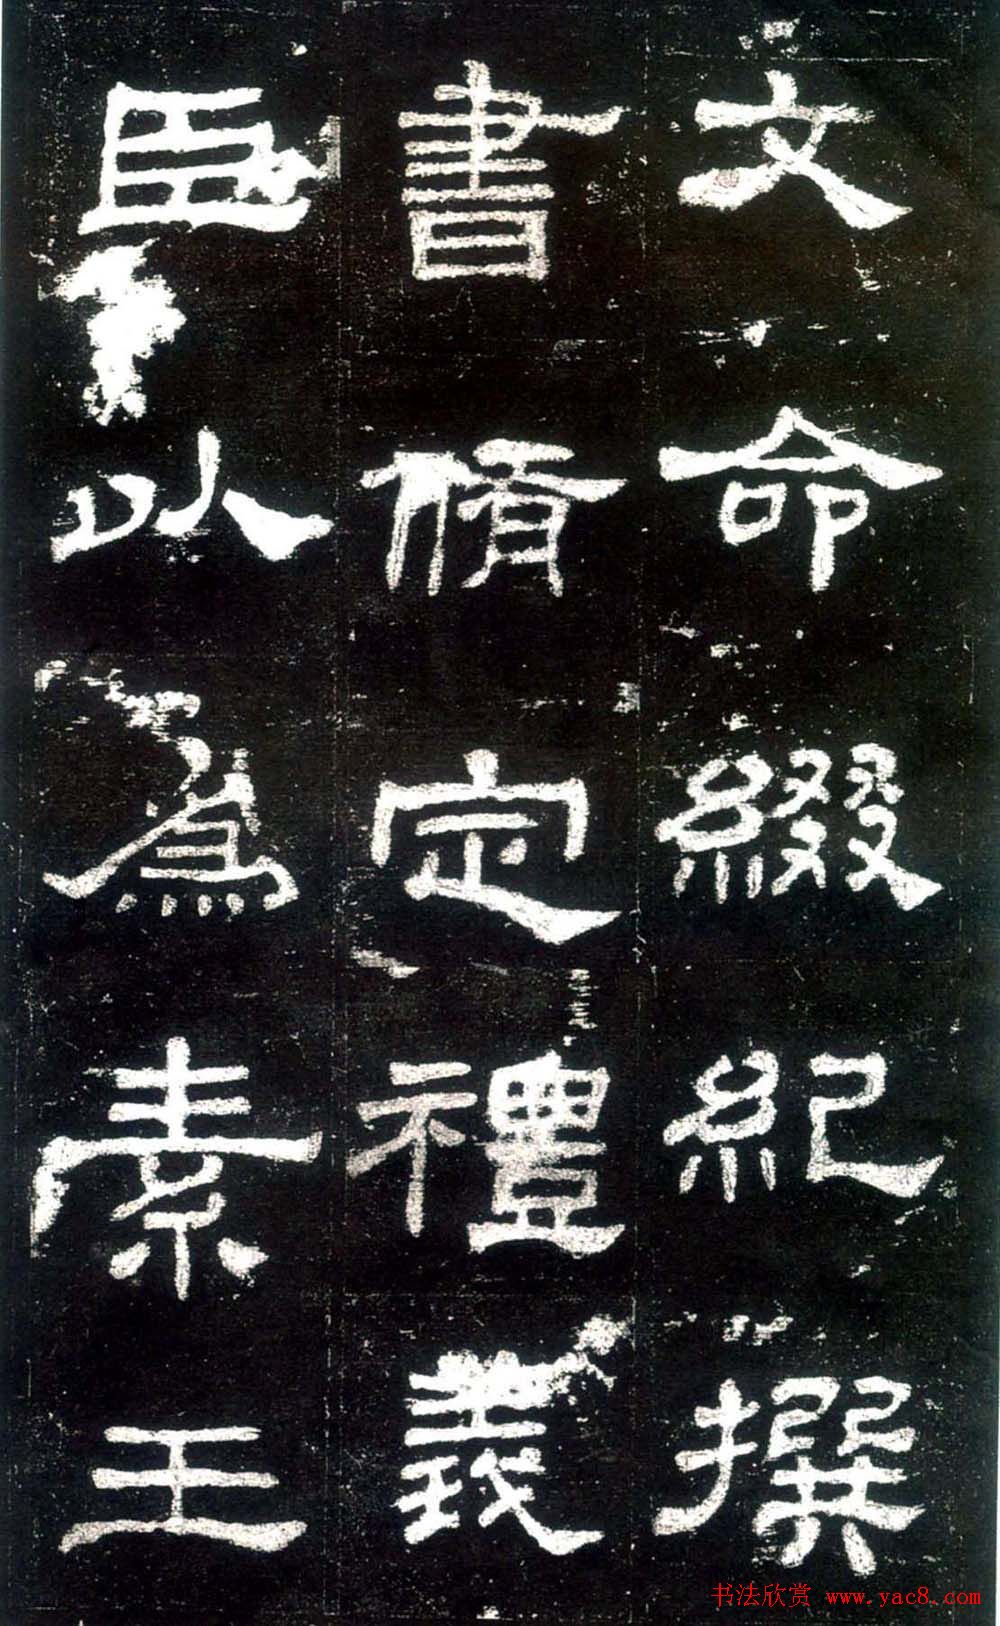 文命綴紀撰
書脩定禮義
臣以為素王
书法欣赏 www.yac8.com